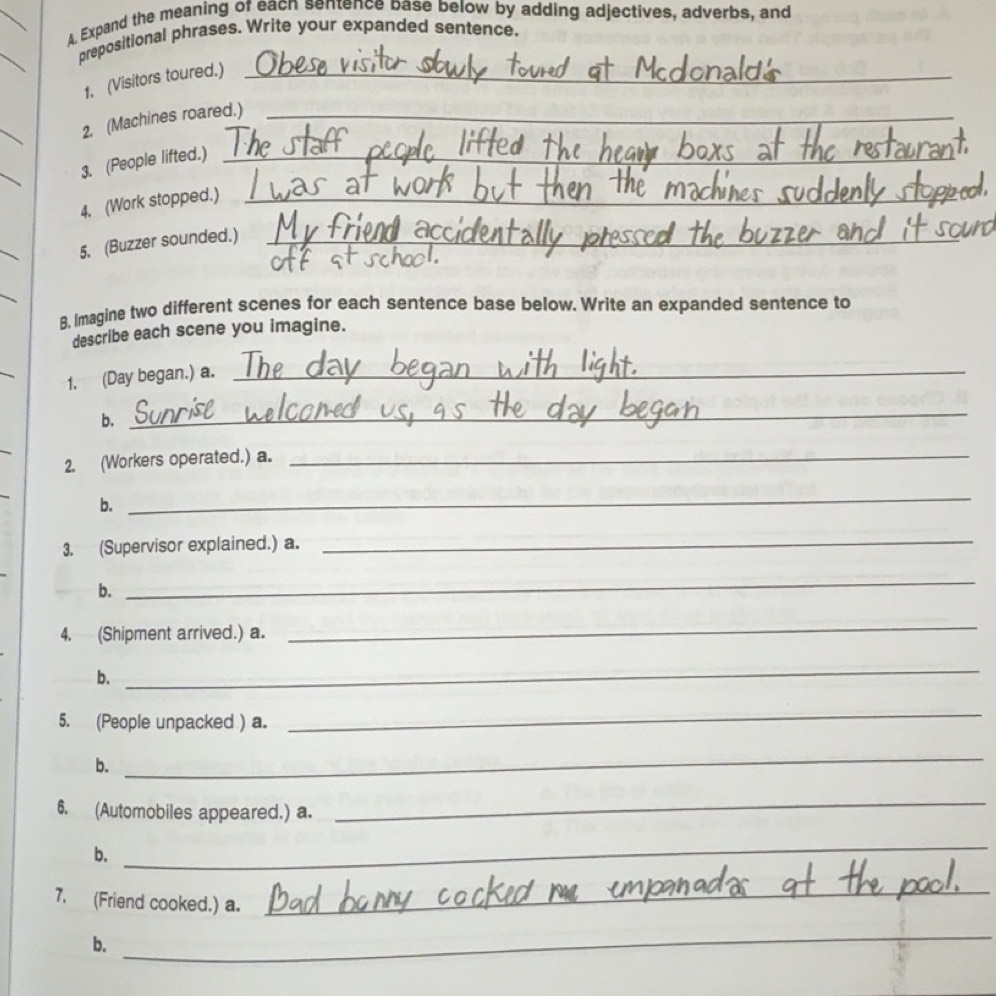 A. Expand the meaning of each sentence base below by adding adjectives, adverbs, and
prepositional phrases. Write your expanded sentence.
1. (Visitors toured.) Obese visitor slowly toured at Mcdonald's
2. (Machines roared.)
3. (People lifted.) The staff people lifted the heavy boxs at the restaurant.
4. (Work stopped.) I was at work but then the machines suddenly stopped.
5. (Buzzer sounded.) My friend accidentally pressed the buzzer and it sound
off at school.
B. Imagine two different scenes for each sentence base below. Write an expanded sentence to
describe each scene you imagine.
1. (Day began.) a. The day began with light.
b. Sunrise welcomed us, as the day began
2. (Workers operated.) a.
b.
3. (Supervisor explained.) a.
b.
4. (Shipment arrived.) a.
b.
5. (People unpacked ) a.
b.
6. (Automobiles appeared.) a.
b.
7. (Friend cooked.) a. Bad bunny cocked me empanadas at the pool.
b.